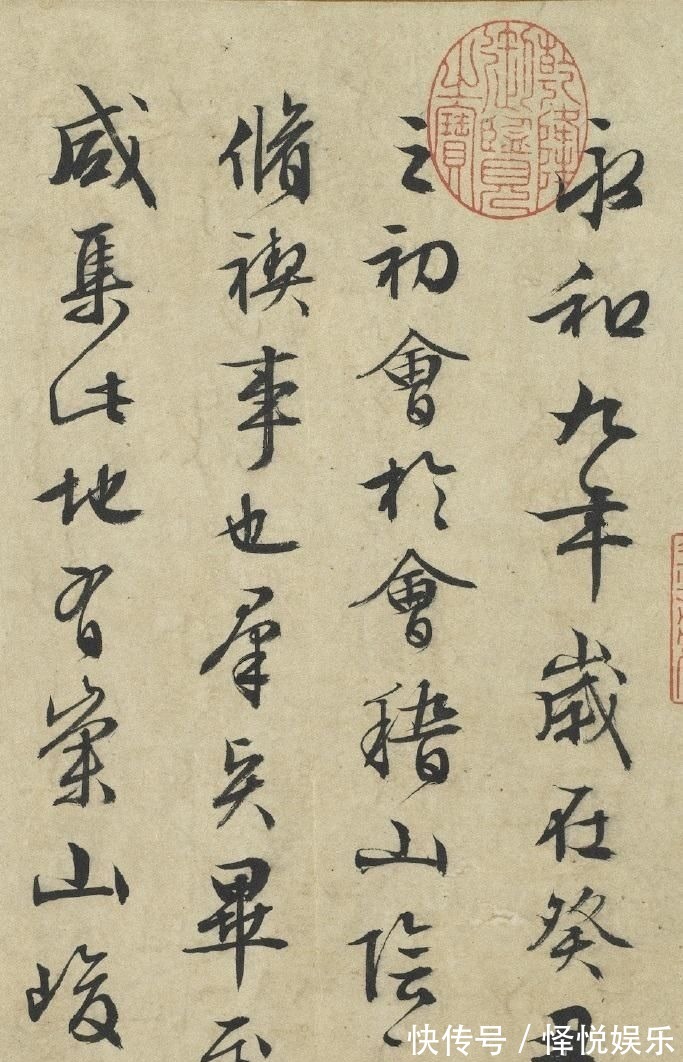 永和九年歲在癸丑
之初會於會稽山陰
脩禊事也羣賢畢至
咸集此地有崇山峻
乾隆御覽之寶
快传号/怿悦娱乐